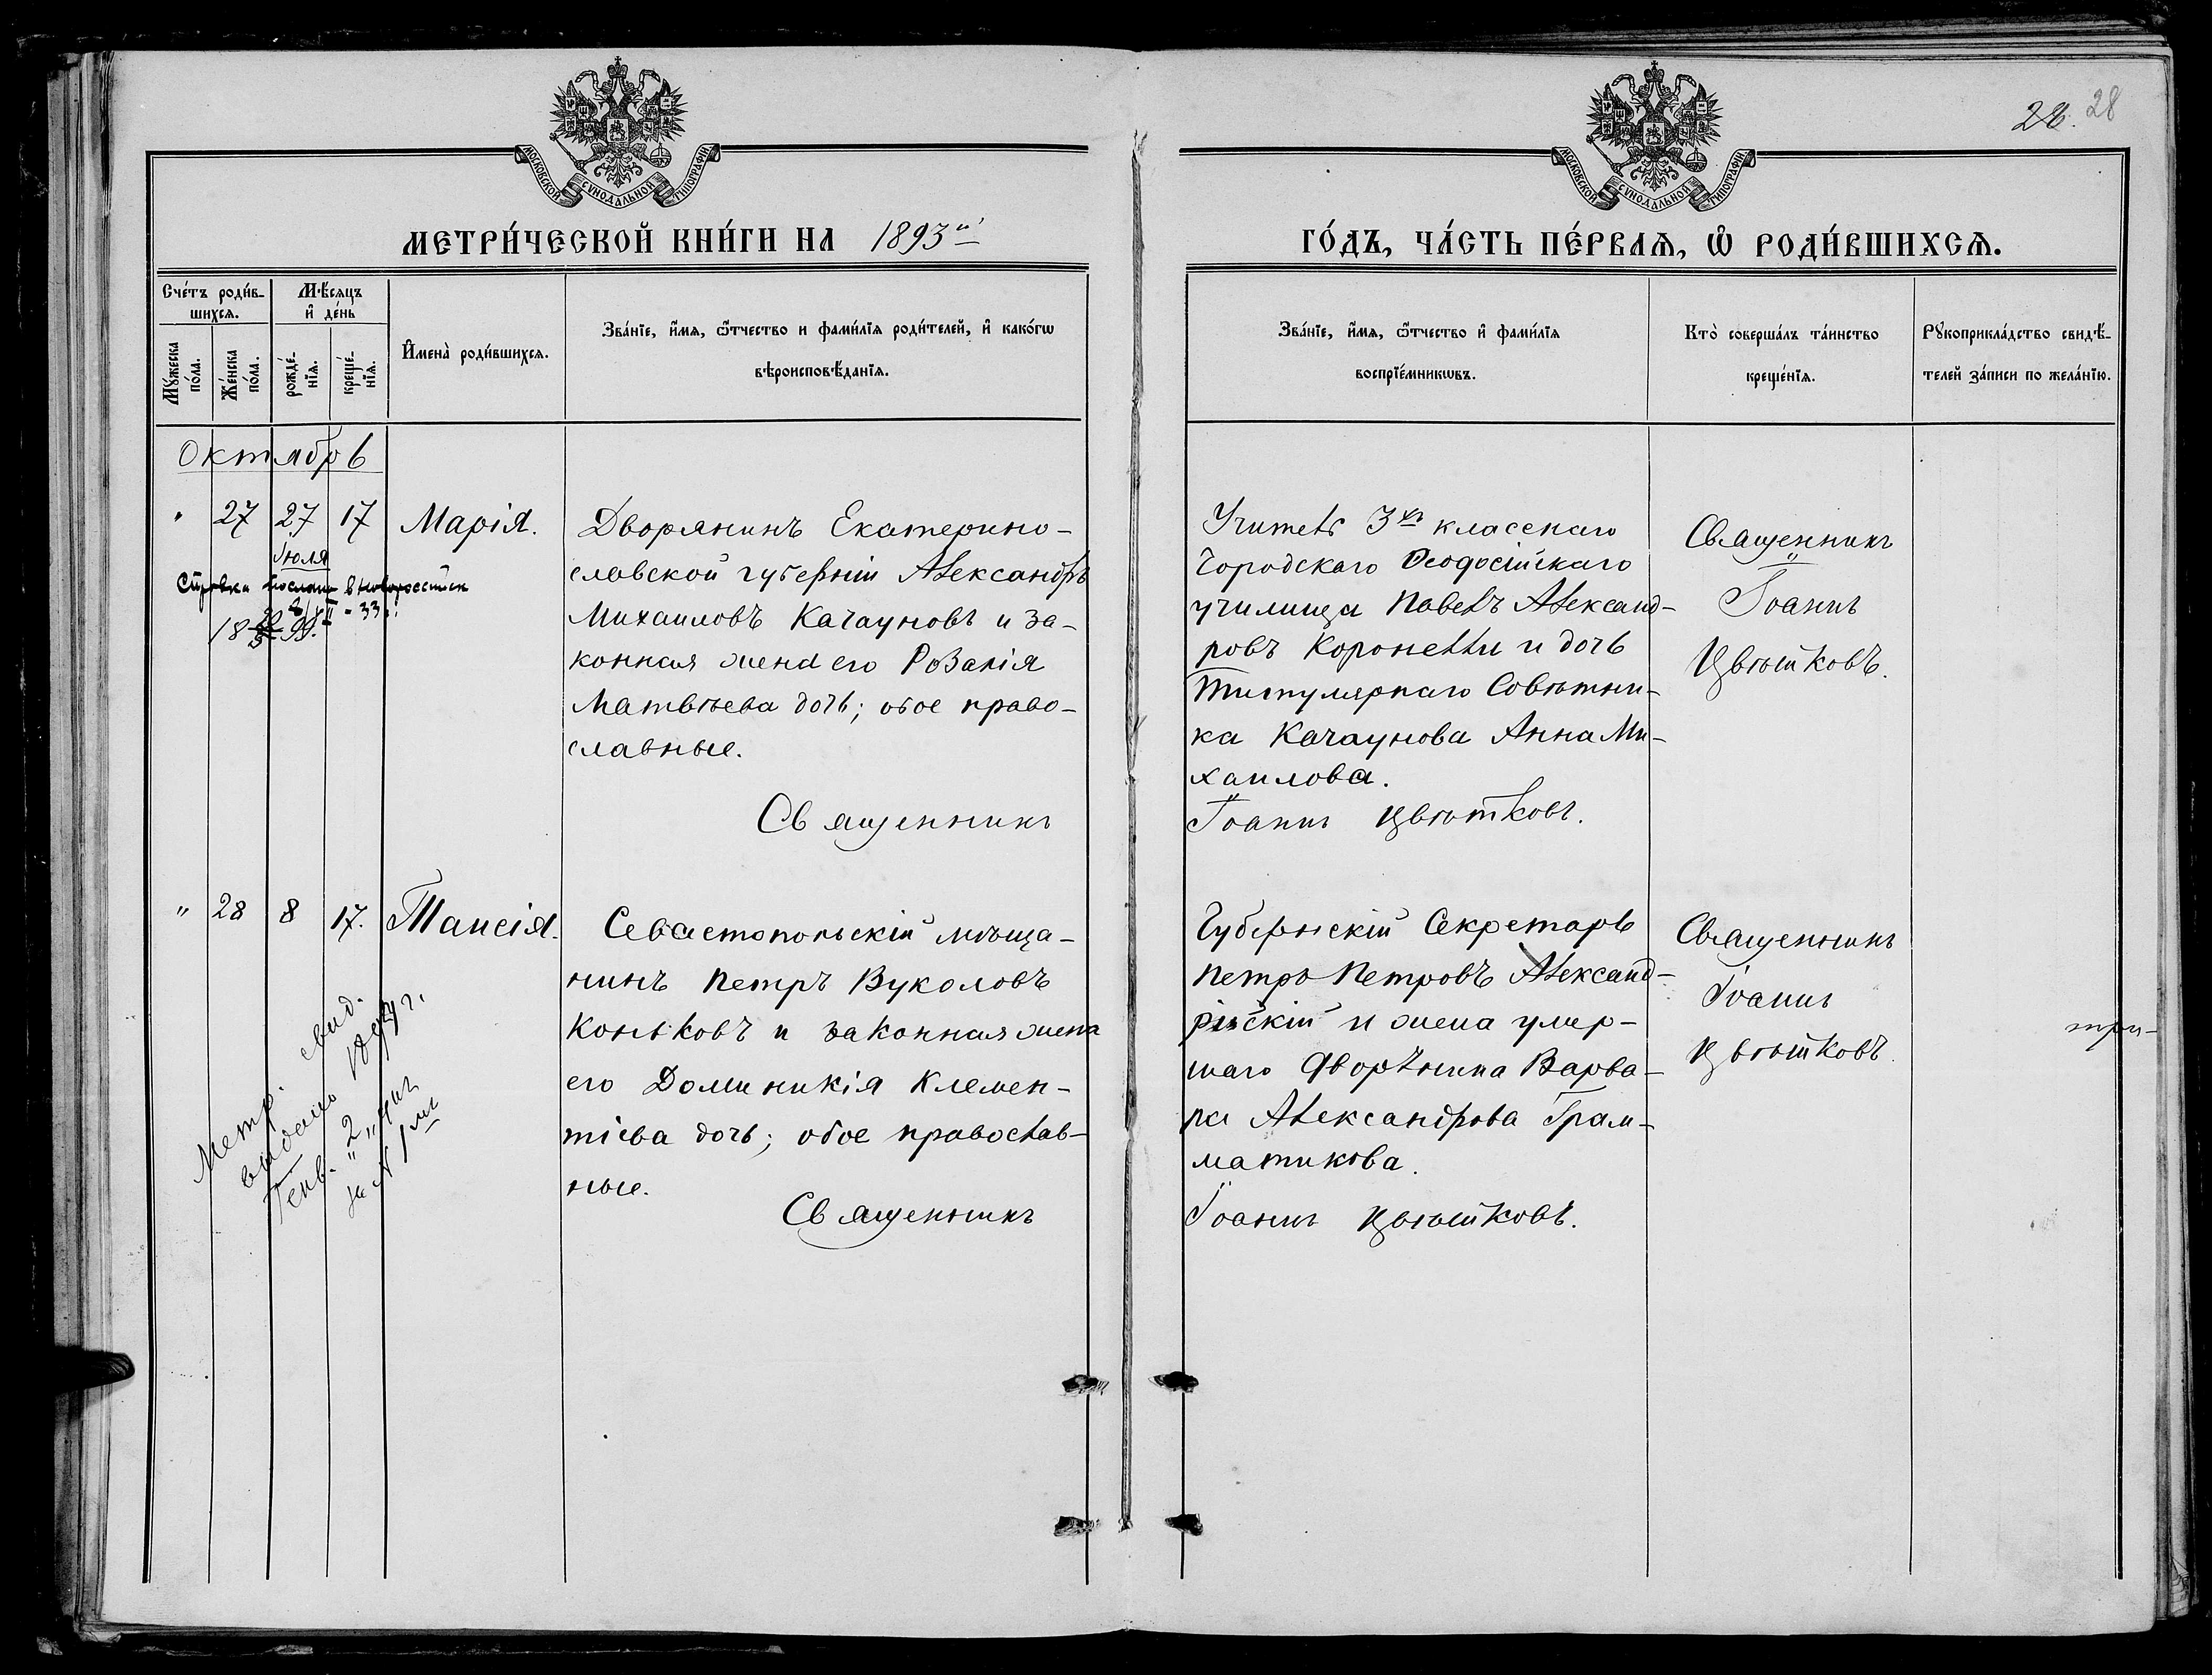 28. 28
МОСКОВСКОЙ СѴНОДАЛЬНОЙ ТИПОГРАФІИ
МОСКОВСКОЙ СѴНОДАЛЬНОЙ ТИПОГРАФІИ
МЕТРИ́ЧЕСКОЙ КНИ́ГИ НА 1893й
ГО́ДЪ, ЧА́СТЬ ПЕ́РВАѦ, Ѡ҆ РОДИ́ВШИХСѦ.
Сче́тъ роди́в-
шихсѧ.
Мꙋ́жеска по́ла.
Же́нска по́ла.
Мѣ́сѧцъ
и҆ де́нь
рожде́-
нїѧ.
креще́-
нїѧ.
И҆мена̀ роди́вшихсѧ.
Зва́нїе, и҆́мѧ, ѻ҆́тчество и фами́лїѧ роди́телей, и҆ како́гѡ
вѣроисповѣ́данїѧ.
Зва́нїе, и҆́мѧ, ѻ҆́тчество и҆ фами́лїѧ
воспрїе́мникѡвъ.
Кто̀ соверша́лъ та́инство
креще́нїѧ.
Рꙋкоприкла́дство свидѣ́-
телей за́писи по жела́нїю.
Октябрь
" 27 27 17 Марія.
Іюля
Справка послана в Новороссійск
Дворянинъ Екатерино-
славской губерніи Александръ
Михаиловъ Качауновъ и за-
конная жена его Розалія
Матвѣева дочь; обое право-
славные.
Священникъ
Учитель 3хъ класснаго
Городскаго Ѳеодосійскаго
училища Павелъ Александ-
ровъ Коронелли и дочь
Титулярнаго Совѣтни-
ка Качаунова Анна Ми-
хаилова.
Іоаннъ Цвѣтковъ.
Священникъ
Іоаннъ
Цвѣтковъ.
" 28 8 17. Таисія.
Метр. свид.
выдано 1899 г.
Генв. " 2 " дня
за № 1мъ
Севастопольскій мѣща-
нинъ Петръ Вуколовъ
Коньковъ и законная жена
его Доминикія Клемен-
тіева дочь; обое православ-
ные.
Священникъ
Губернскій Секретарь
Петръ Петровъ Александ-
рійскій и жена умер-
шаго Дворянина Варва-
ра Александрова Грам-
матикова.
Іоаннъ Цвѣтковъ.
Священникъ
Іоаннъ
Цвѣтковъ.
три-